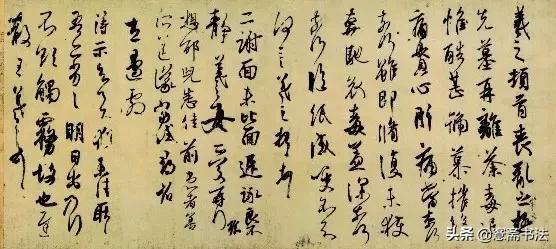 羲之頓首喪亂之極
先墓再離荼毒追
惟酷甚號慕摧絕
痛貫心肝痛當奈何
奈何雖即脩復未獲
奔馳哀毒益深奈何
奈何臨紙感哽不知
何言羲之頓首頓首
二謝面未比面遲詠良不
靜羲之女愛再拜
想邵兒悉佳前患者善
所送議當試尋省
左邊劇
得示知足下猶未佳耿耿
吾亦劣劣明日出乃行
不欲觸霧故也遲
散王羲之頓首
头条 @斋书法